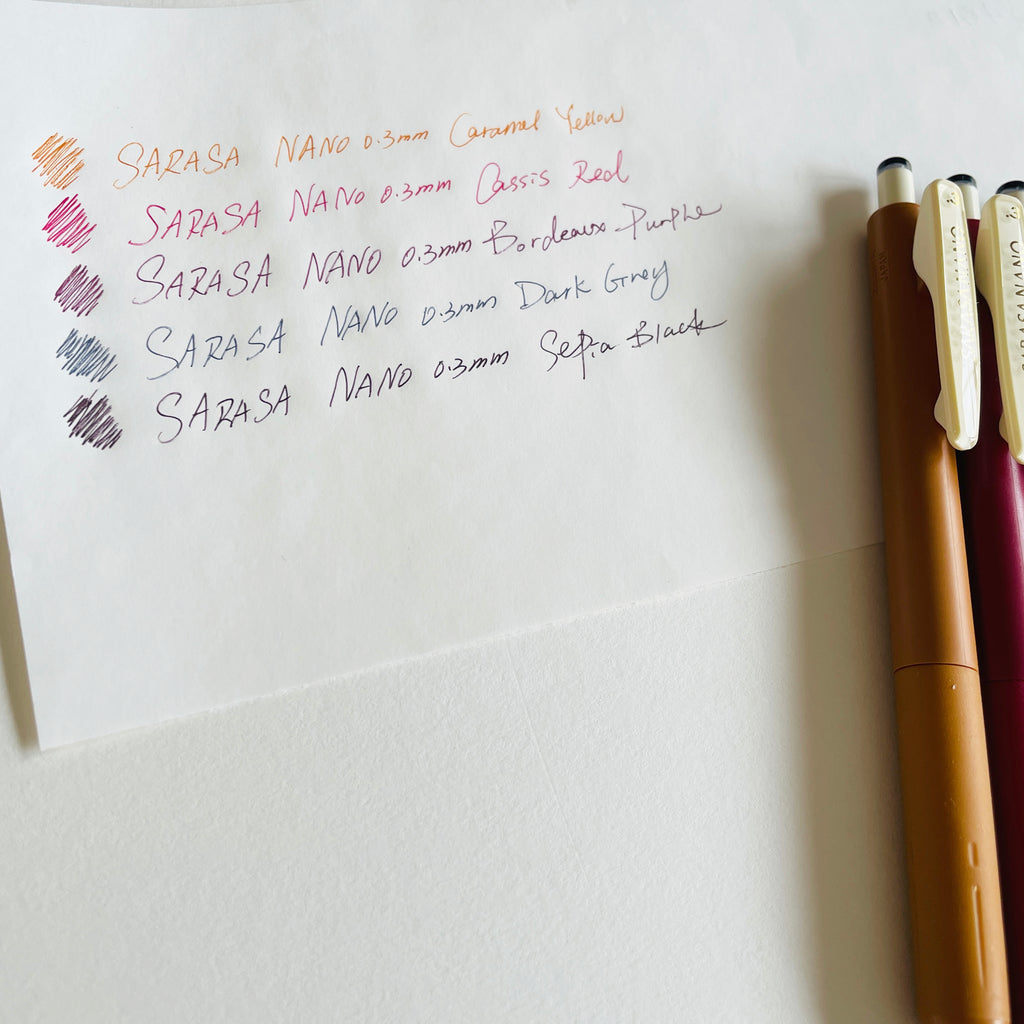 SARASA NANO 0.3mm Caramel Yellow
SARASA NANO 0.3mm Cassis Red
SARASA NANO 0.3mm Bordeaux Purple
SARASA NANO 0.3mm Dark Grey
SARASA NANO 0.3mm Sepia Black
SARASA NANO